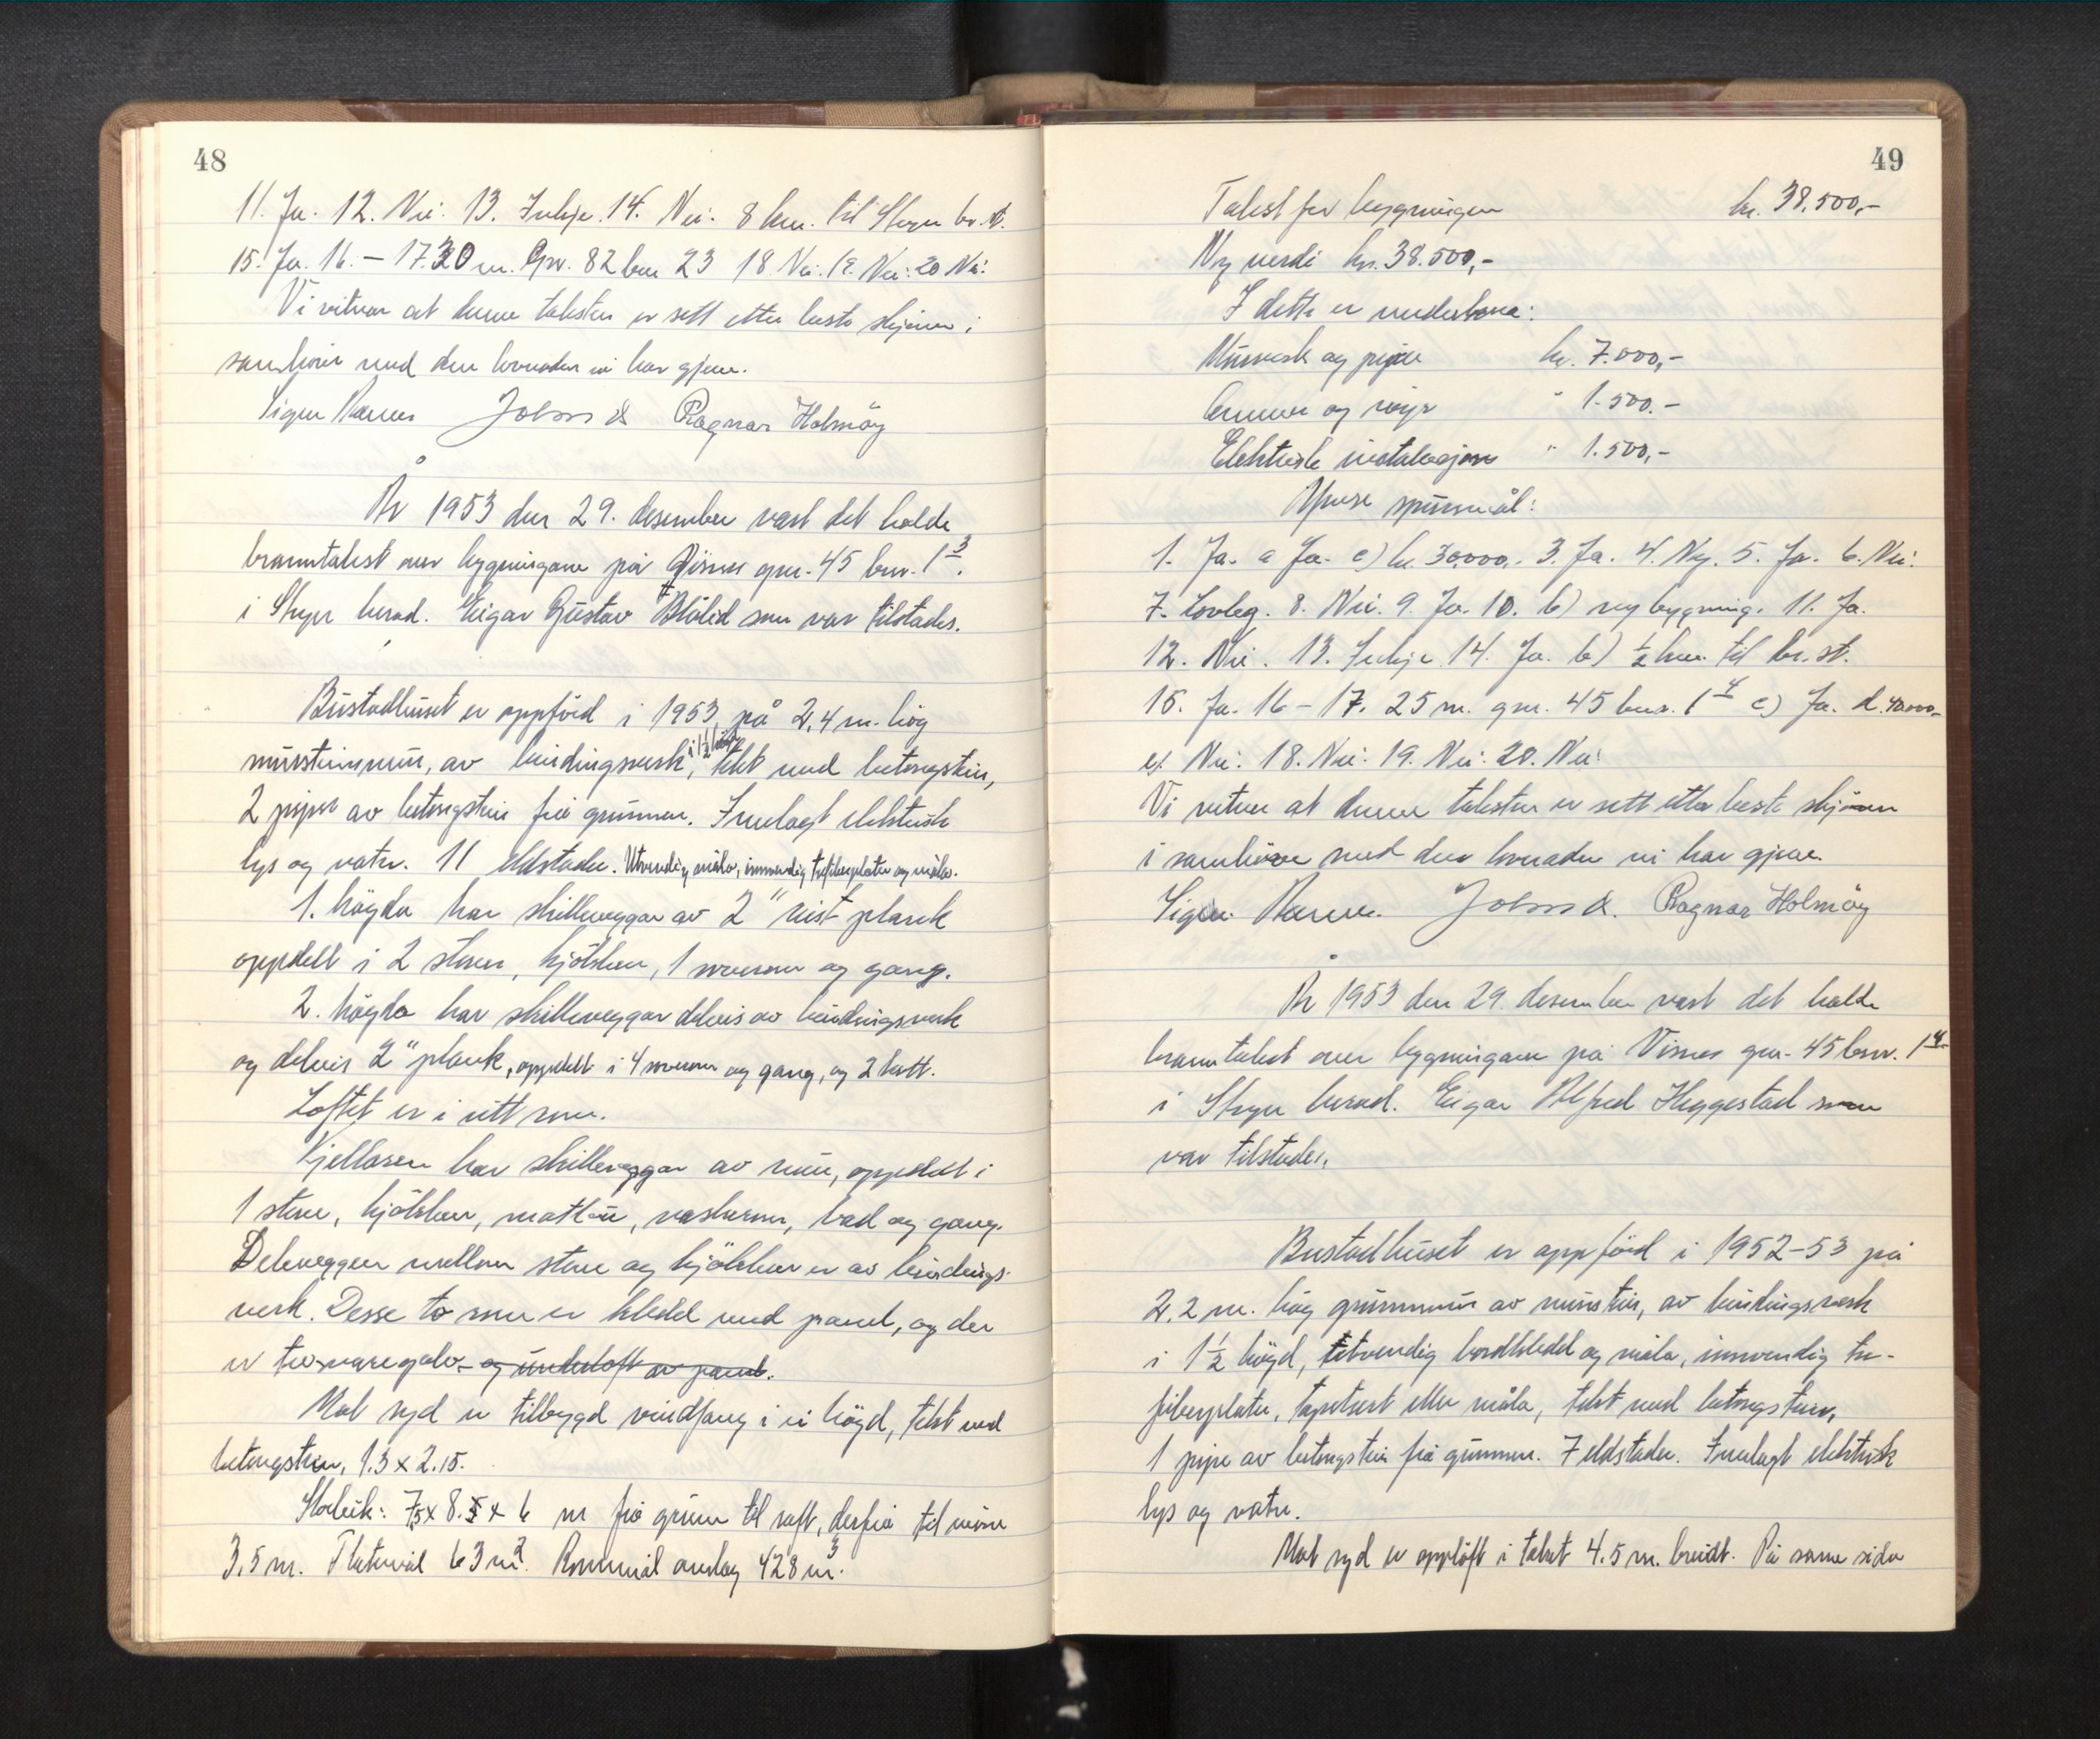 48
11. Ja. 12. Nei. 13. Inkje. 14. Nei. 8 km. til Stryn br.st.
15. Ja. 16. – 17. 30 m. Gnr. 82 bnr 23 18. Nei. 19. Nei. 20 Nei.
Vi vitnar at denne taksten er sett etter beste skjönn i
samhöve med den lovnaden vi har gjeve.
Sigur Ragnar Holmöy
År 1953 den 29. desember vart det halde
branntakst over bygningane på Visnes gnr. 45 bnr. 1 3.
i Stryn herad. Eigar Gustav Blålid som var tilstades.
Bustadhuset er oppförd i 1953, på 2,4 m. hög
mursteinmur, av bindingsverk, i 1½ högd, tekt med betongstein,
2 piper av betongstein frå grunnen. Innlagt elektrisk
lys og vatn. 11 eldstader. Utvendig måla, innvendig trefiberplater og måla.
1. högda har skilleveggar av 2" reist plank
oppdelt i 2 stover, kjöken, 1 soverom og gang.
2. högda har skilleveggar delvis av bindingsverk
og delvis 2" plank, oppdelt i 4 soverom og gang, og 2 kott.
Loftet er i eitt rom.
Kjellaren har skilleveggar av mur, oppdelt i
1 stove, kjöken, matbu, vaskerom, bad og gang.
Deleveggen mellom stove og kjöken er av bindings-
verk. Desse to rom er kledd med panel, og der
er trevaregolv og underloft av panel.
Mot syd er tilbygd vindfang i ei högd, tekt med
betongstein, 1.3 x 2.15.
Storleik: 7,5 x 8.5 x 6 m frå grunn til raft, derfrå til möne
3,5 m. Flatemål 63 m². Rommål omlag 428 m³.
49
Takst for bygningen kr. 38.500,-
Ny verdi kr. 38.500,-
I dette er medrekna:
Murverk og pipe kr. 7.000,-
Omnar og röyr " 1.500.-
Elektrisk installasjon " 1.500,-
Ymse spursmål:
1. Ja. a Ja. c) kr. 30.000,. 3. Ja. 4. Ny. 5. Ja. 6. Nei.
7. Lovleg. 8. Nei. 9. Ja. 10. b) ny bygning. 11. Ja.
12. Nei. 13. Inkje 14. Ja. b) ½ km. til br. st.
15. Ja. 16 – 17. 25 m. gnr. 45 bnr. 1 4 c) Ja. d. 40.000,-
e) Nei. 18. Nei. 19. Nei. 20. Nei.
Vi vitnar at denne taksten er sett etter beste skjönn
i samhöve med den lovnaden vi har gjeve.
Sigur Ragnar Holmöy
År 1953 den 29. desember vart det halde
branntakst over bygningane på Visnes gnr. 45 bnr. 1 4
i Stryn herad. Eigar Alfred Heggestad som
var tilstades.
Bustadhuset er oppförd i 1952-53 på
2,2 m. hög grunnmur av murstein, av bindingsverk
i 1½ högd, utvendig bordkledd og måla, innvendig tre-
fiberplater, tapetsert eller måla, tekt med betongstein,
1 pipe av betongstein frå grunnen. 7 eldstader. Innlagt elektrisk
lys og vatn.
Mot syd er opplöft i taket 4.5 m. breidt. På same sida